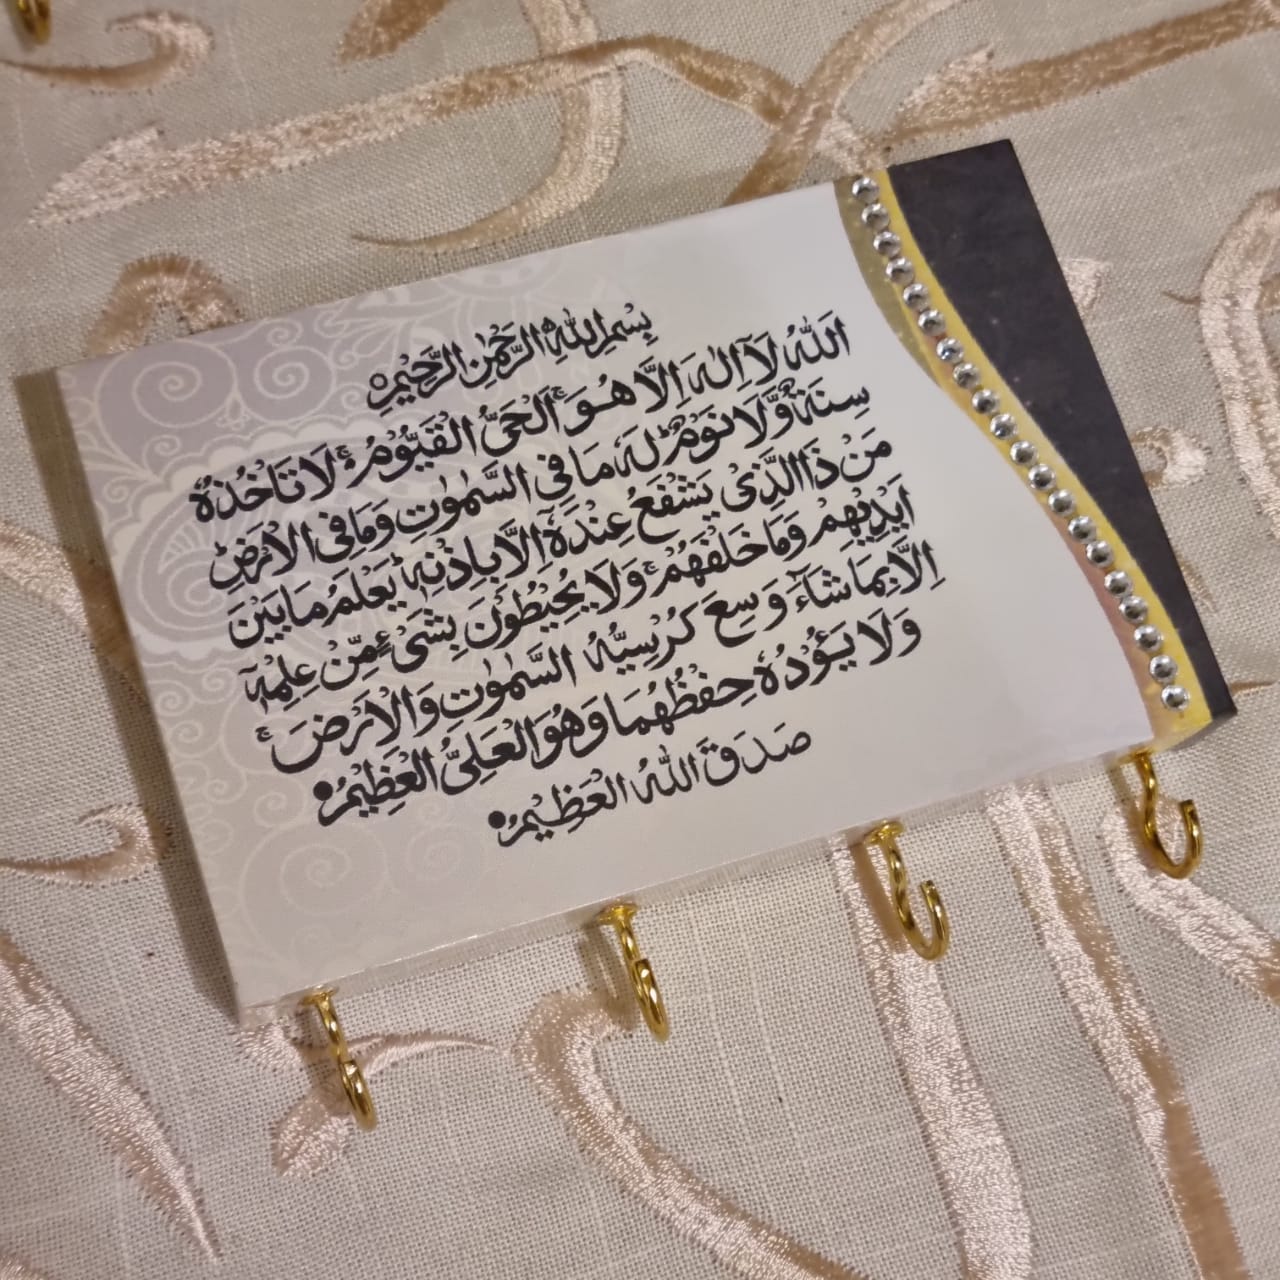 بِسْمِ اللهِ الرَّحْمٰنِ الرَّحِيْمِ
اَللهُ لَآ اِلٰهَ اِلَّا هُوَ ۚ اَلْحَىُّ الْقَيُّوْمُ ۚ لَا تَاْخُذُهٗ
سِنَةٌ وَّلَا نَوْمٌ ؕ لَهٗ مَا فِى السَّمٰوٰتِ وَمَا فِى الْاَرْضِ ؕ
مَنْ ذَا الَّذِىْ يَشْفَعُ عِنْدَهٗٓ اِلَّا بِاِذْنِهٖ ؕ يَعْلَمُ مَا بَيْنَ
اَيْدِيْهِمْ وَمَا خَلْفَهُمْ ۚ وَلَا يُحِيْطُوْنَ بِشَىْءٍ مِّنْ عِلْمِهٖٓ
اِلَّا بِمَا شَآءَ وَسِعَ كُرْسِيُّهُ السَّمٰوٰتِ وَالْاَرْضَ ۚ
وَلَا يَـُٔوْدُهٗ حِفْظُهُمَا وَهُوَ الْعَلِىُّ الْعَظِيْمُ •
صَدَقَ اللهُ الْعَظِيْمُ •